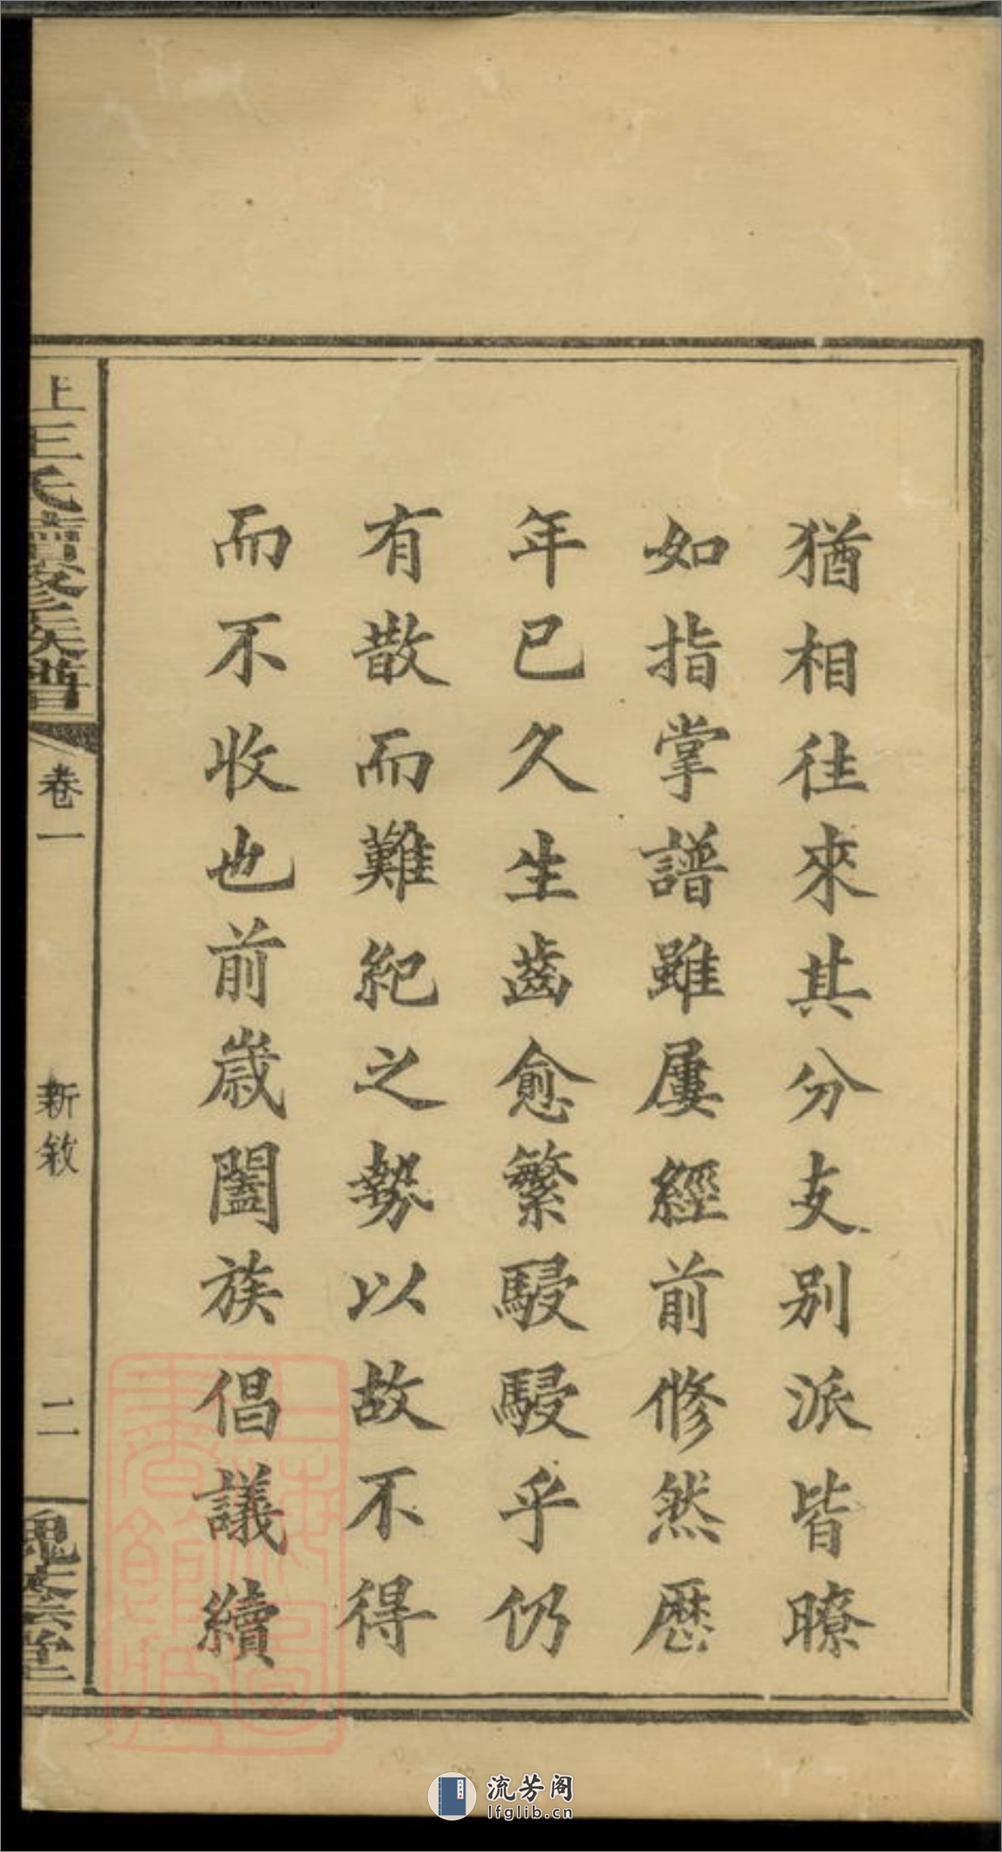 猶相往來其分支別派皆瞭
如指掌譜雖屢經前修然歷
年已久生齒愈繁駸駸乎仍
有散而難紀之勢以故不得
而不收也前歲闔族倡議續
上王氏續修族譜
卷一
新敘
二
流芳阁
lfglib.cn